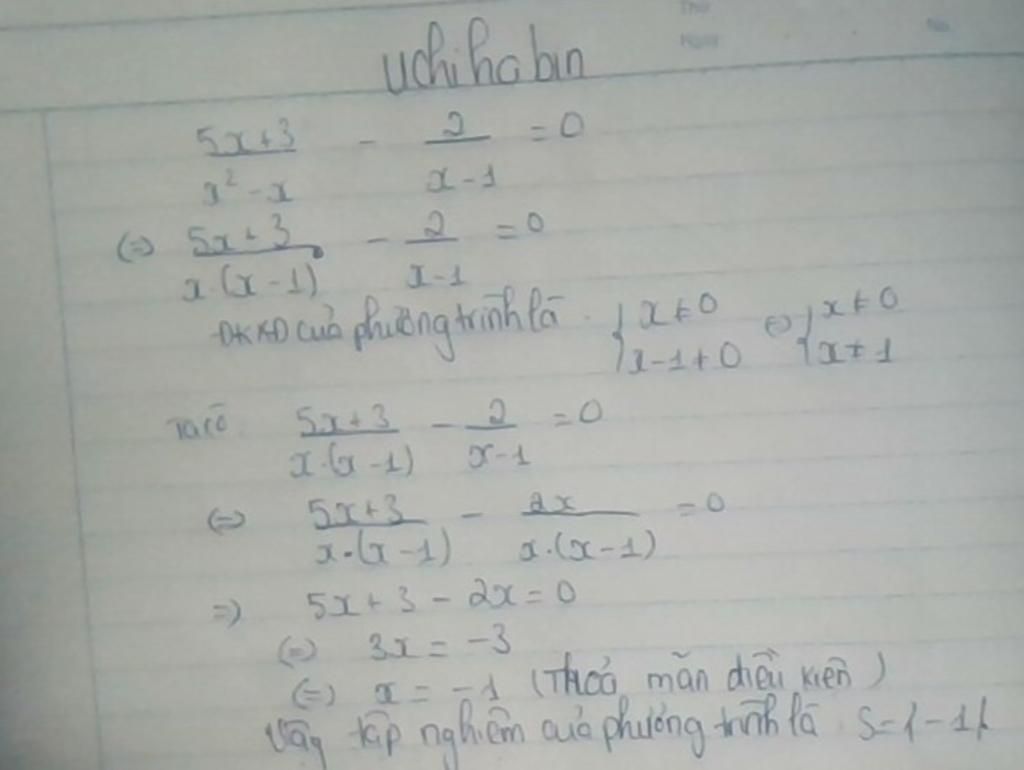 Uchiha bin
5x+3 / x² - x - 2 / x - 1 = 0
(=) 5x+3 / x.(x-1) - 2 / x-1 = 0
ĐKXĐ của phương trình là { x ≠ 0 / x-1 ≠ 0 (=) { x ≠ 0 / x ≠ 1
Ta có: 5x+3 / x.(x-1) - 2 / x-1 = 0
(=) 5x+3 / x.(x-1) - 2x / x.(x-1) = 0
=) 5x + 3 - 2x = 0
(=) 3x = -3
(=) x = -1 (Thoả mãn điều kiện)
Vậy tập nghiệm của phương trình là S={-1}